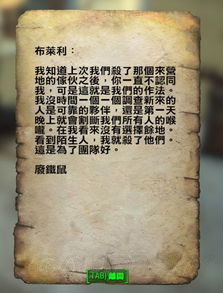 布萊利：
我知道上次我們殺了那個來營
地的傢伙之後，你一直不認同
我，可是這就是我們的作法。
我沒時間一個一個調查新來的
人是可靠的夥伴，還是第一天
晚上就會割斷我們所有人的喉
嚨。在我看來沒有選擇餘地。
看到陌生人，我就殺了他們。
這是為了團隊好。
廢鐵鼠
TAB) 離開